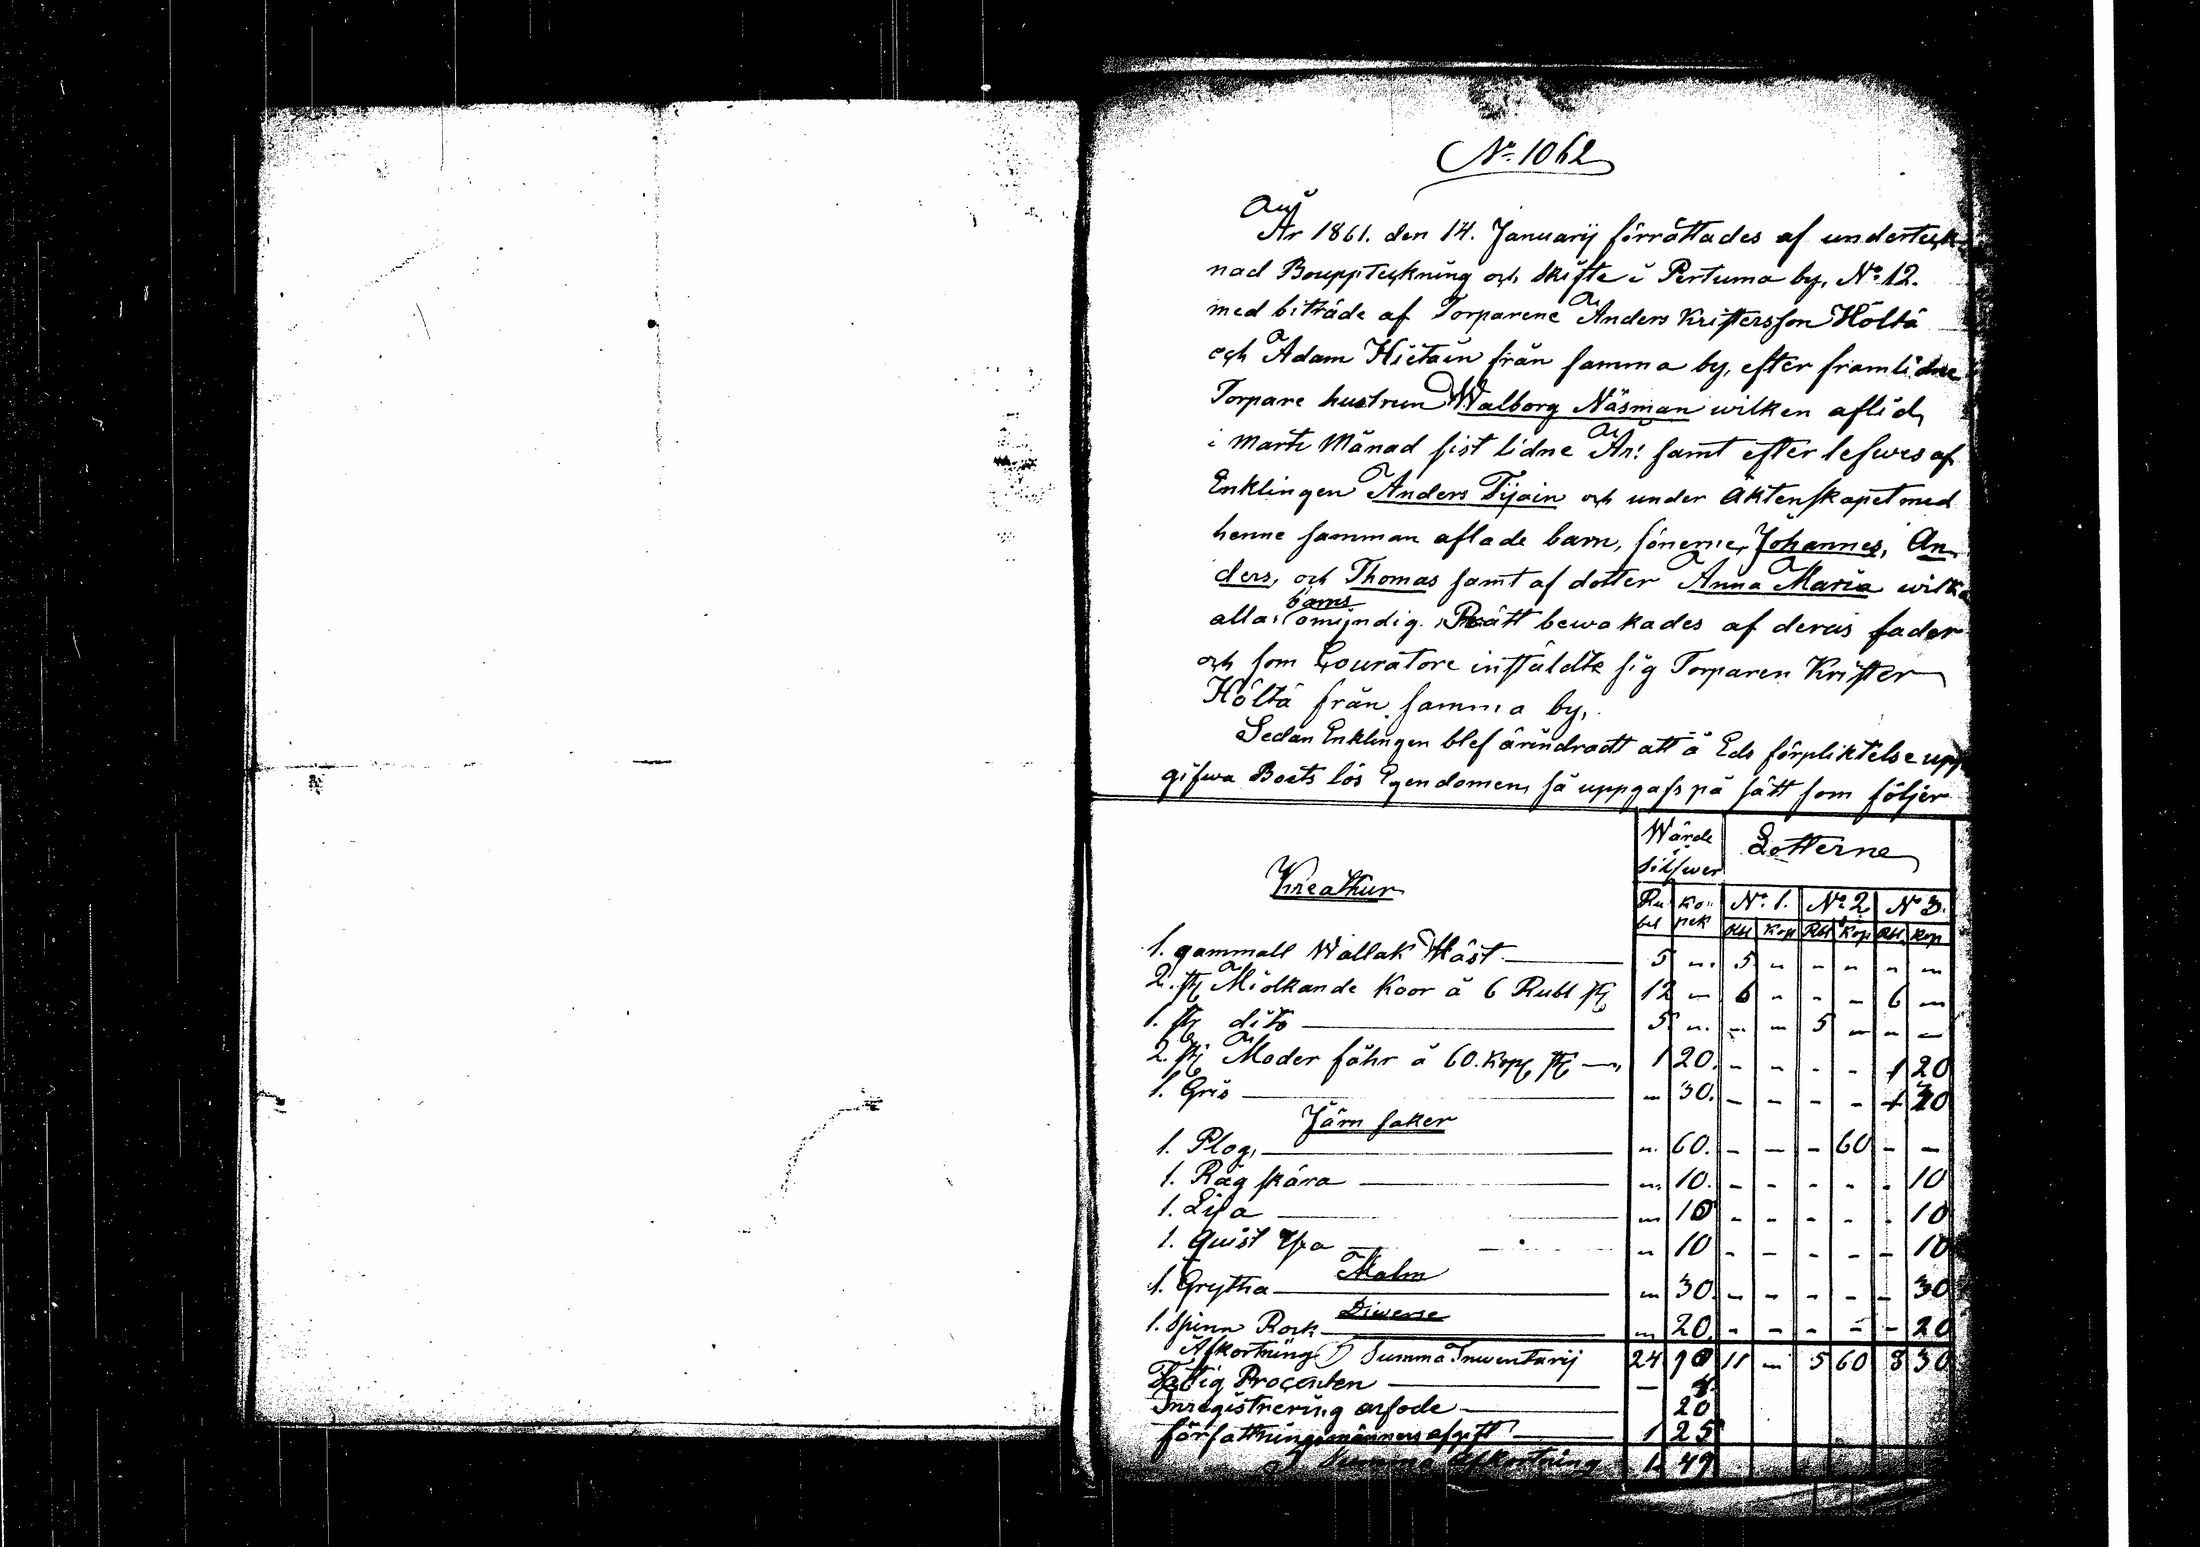 No 1062
År 1861. den 14. Januarij förrättades af underteck-
nad Boupptekning och skifte i Pertuma by, No 12.
med biträde af Torparene Anders Kristersson Höltä
och Adam Hietain från samma by, efter framlidne
Torpare hustrun Walborg Näsman wilken aflid,
i Marti Månad sist lidne År: samt efter lefwes af
Enklingen Anders Tijain och under äktenskapet med
henne samman aflade barn, sönerne, Johannes, An
ders, och Thomas samt af dotter Anna Maria wilka
alla: omÿndig. barns Rätt bewakades af deras fader
och som Couratore instäldte sig Torparen Krister
Höltä från samma by,
Sedan Enklingen blef ärindradt att å Eds förpliktelse upp
gifwa Boets lös Egendomen, så uppgafs på sätt som följer
Wärde i silfwer Lotterne
Kreathur
Ru bel ko- pek No 1. No 2 No 3.
Rbl Kop Rbl Kop Rbl Kop
1. gammall Wallak Häst 5 „ 5 - - - - -
2. st Miölkande Koor á 6 Rubl st 12 - 6 - - - 6 -
1. st dito 5 „ - - 5 - - -
2. st Moder fåhr á 60. kop st 1 20. - - - - 1 20
1. Gris - 30. - - - - 30
Järn saker
1. Plog, „ 60. - - - 60 - -
1. Råg skära „ 10. - - - - - 10
1. Lija „ 10 - - - - - 10
1. quist Yxa „ 10 - - - - - 10
Malm
1. Grytha „ 30. - - - - - 30
Diwerse
1. Spinn Rock „ 20. - - - - - 20
Afkortning Summa Inwentarij 24 90 11 - 5 60 8 30
Fattig Procenten -
Inregistrering arfode 20
författningsmänners afgift 1 25
Summa Afkortning 1. 49